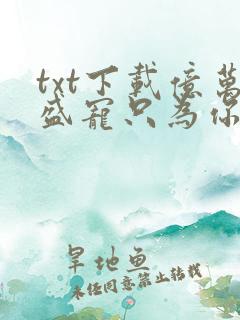 txt下載億萬
盛寵只為你
旱地魚
未经同意禁止转载